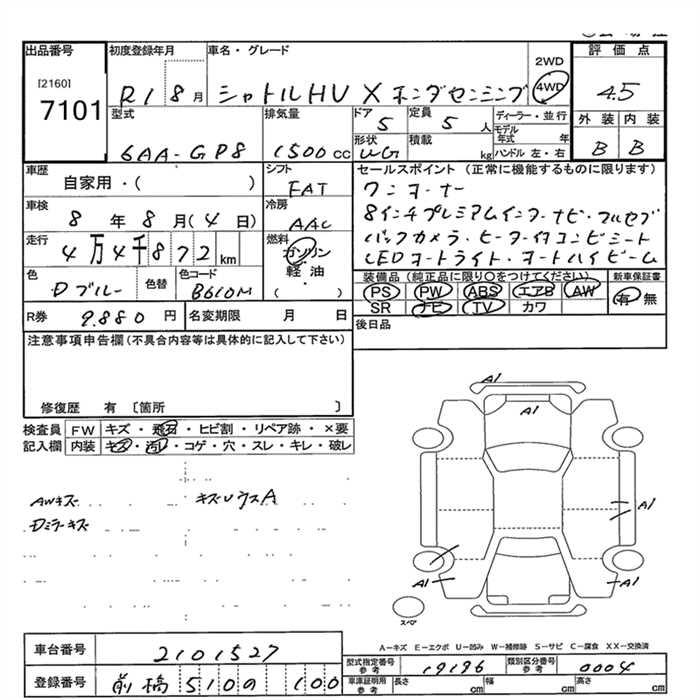 出品番号
[2160]
7101
初度登録年月
R1 8月
車名・グレード
シャトルHV X ホンダセンシング
2WD
4WD
評価点
4.5
型式
6AA-GP8
排気量
1500cc
ドア
5
定員
5人
形状
WG
積載
kg
ディーラー・並行
モデル年式 年
ハンドル 左・右
外装 内装
B B
車歴
自家用・( )
シフト
FAT
車検
8年8月(4日)
冷房
AAC
走行
4万4千872km
燃料
ガソリン
軽油
・
( )
色
Dブルー
色替
色コード
B610M
R券 9.880円
名変期限 月 日
セールスポイント (正常に機能するものに限ります)
ワンオーナー
8インチプレミアムインターナビ・フルセグ
バックカメラ・ヒーター付コンビシート
LEDオートライト・オートハイビーム
装備品 (純正品に限り○をつけてください)
新車保証書
PS PW ABS エアB AW
SR ナビ TV カワ
有 無
後日品
注意事項申告欄(不具合内容等は具体的に記入して下さい)
修復歴 有 〔箇所 〕
検査員記入欄
FW キズ・飛石・ヒビ割・リペア跡・×要
内装 キズ・汚レ・コゲ・穴・スレ・キレ・破レ
AWキズ
Dミラーキズ
キズUウスA
A1
A1
A1
A1
A1
スペア
A―キズ E―エクボ U―凹み W―補修跡 S―サビ C―腐食 XX―交換済
車台番号 2101527
登録番号 前橋 510 の 100
型式指定番号 参考 19196
類別区分番号 参考 0004
車庫証明用 参考 長さ cm 幅 cm 高さ cm